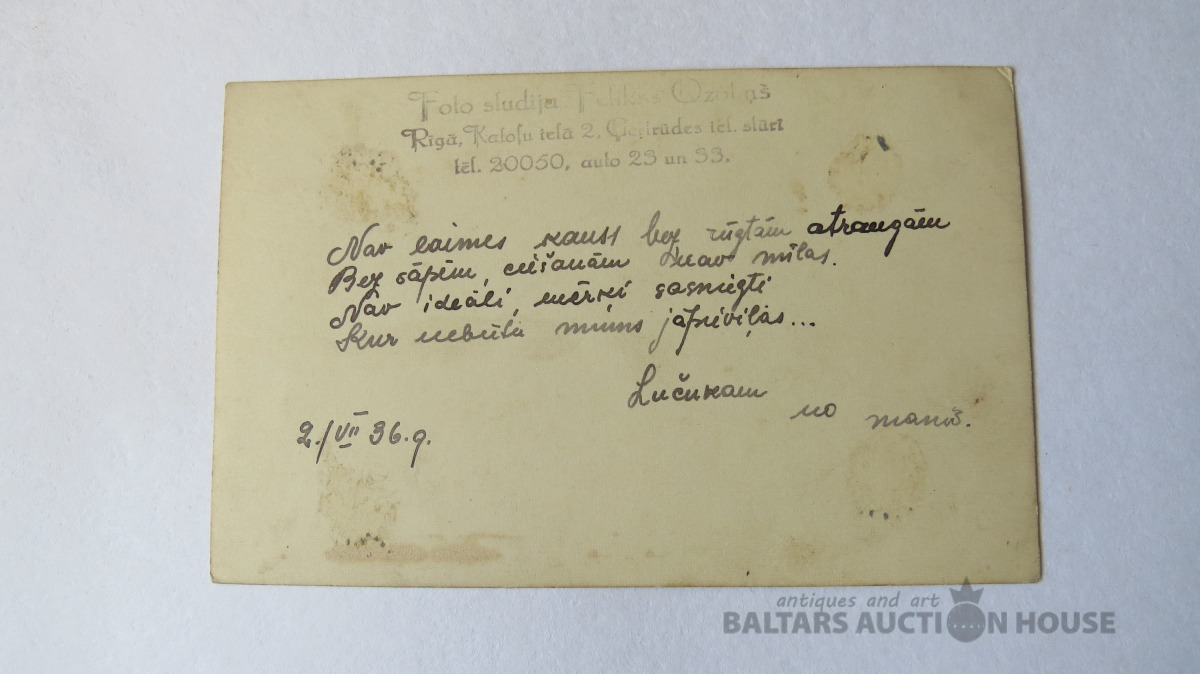 Foto studija Fēlikss Ozoliņš
Rīgā, Katoļu ielā 2, Ģertrūdes iel. stūrī
tel. 20050, auto 23 un 33.
Nav laimes kauss bez rūgtām atraugām
Bez sāpēm, ciešanām nav mīlas.
Nav ideāli, mērķi sasniegti
Kur nebūtu mums jāpieviļas...
Lučukam
no manis.
2./VII 36.g.
antiques and art
BALTARS AUCTION HOUSE